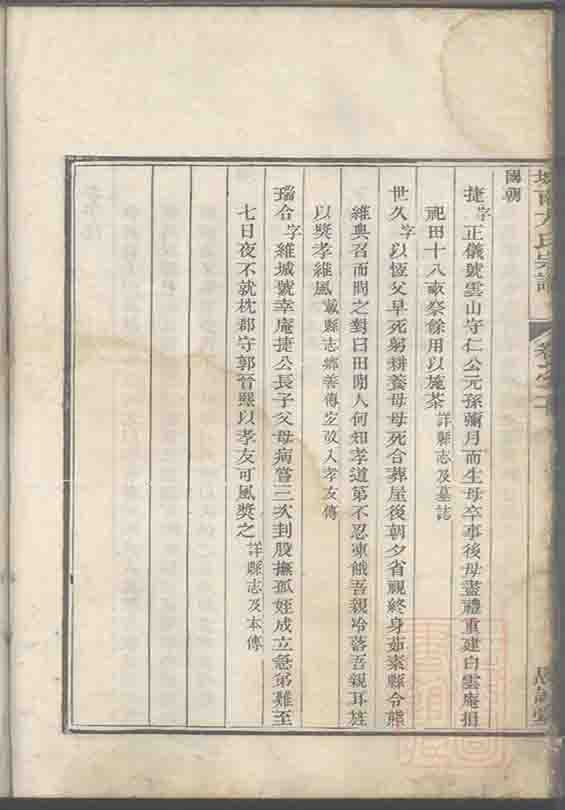 國朝
捷字正儀號雲山守仁公元孫彌月而生母卒事後母盡禮重建白雲庵捐
祀田十八畝祭餘用以施茶詳縣志及墓誌
世久字以恆父早死躬耕養母母死合葬屋後朝夕省視終身茹素縣令熊
維典召而問之對曰田閒人何知孝道第不忍凍餓吾親冷落吾親耳旌
以獎孝維風載縣志鄉善傳宜改入孝友傳
瑞合字維城號幸庵捷公長子父母病嘗三次刲股撫孤姪成立急弟難至
七日夜不就枕郡守郭晉熙以孝友可風獎之詳縣志及本傳